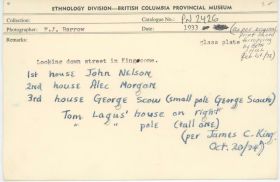 ETHNOLOGY DIVISION—BRITISH COLUMBIA PROVINCIAL MUSEUM
Collection: Catalogue No.: PN 2426
Photographer: F.J. Barrow 1933
Remarks: Glass plate
Looking down street in Kingcome.
1st house John Nelson
2nd house Alec Morgan
3rd house George Scow (small pole George Scow's)
Tom Lagus' house on right
" " pole (tall one)
(per James C. King
Oct. 20/24)